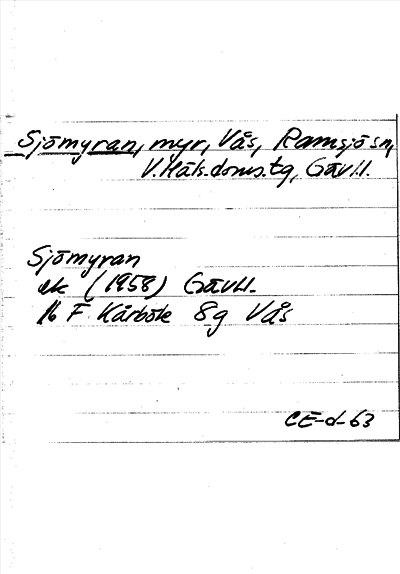 Sjömyran, myr, Vås, Ramsjö sn,
V. Häls. doms. tg, Gävl. l.
Sjömyran
ek (1958) Gävl. l.
16 F Kårböle 8g Vås
CE-d-63